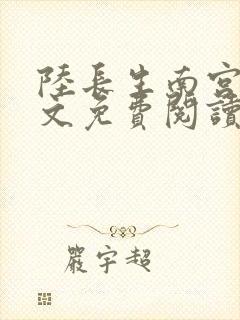 陸長生南宮
文免費閱讀
嚴宇超